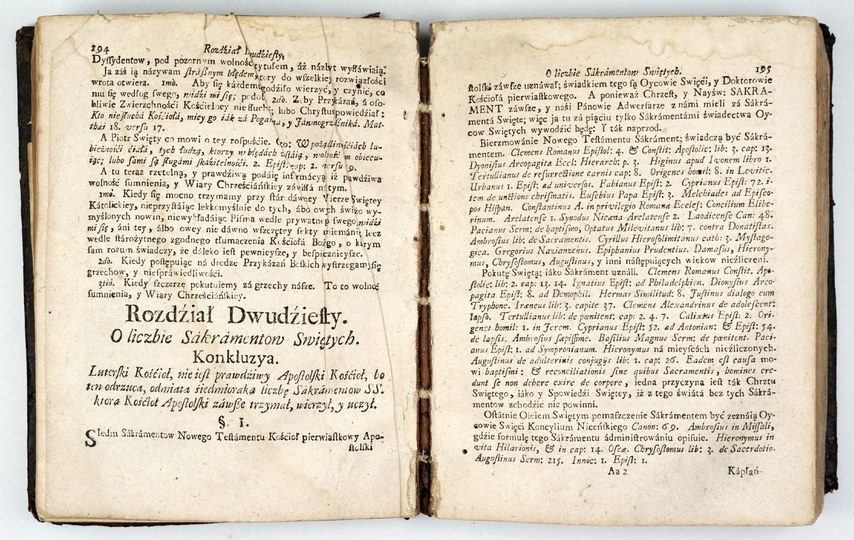 194 Rozdział Dwudziesty.
Dyssydentow, pod pozornym wolnośc tytułem, áż názbyt wysławiáią.
Ja záś ią názywam strásznym błędem, ktory do wszelkiey rozwiązłości
wrota otwiera. 1mò. Aby się káżdemu godziło wierzyć, y czynić, co
mu się według swego, widzi mi się; podob. 2do. Z by Przykázań, á oso-
bliwie Zwierzchności Kościelney nie słuchić; lubo Chrystus powiedział:
Kto nie słucha Kościołá, niey go iák zá Pogá, y Jáwnogrzeszniká. Mat-
thæi 18. versu 17.
A Piotr Swięty co mowi o tey rospuście. W pożądliwościách lu-
bieżności ciáłá, tych ludzi, ktorzy w błędách zstáią, wolność im obiecu-
iąc; lubo sami są sługámi skázitelności. 2. Epist: cap: 2. versu 9.
A tu teraz rzetelną, y prawdziwą podáię informácyą iż prawdziwa
wolność sumnienia, y Wiary Chrześciáńskiey záwisła ná tym.
1mò. Kiedy się mocno trzymamy przy stár dáwney Vierze Swiętey
Kátolickiey, nieprzystáiąc lekkomyślnie do tych, ábo owych świżo wy-
myślonych nowin, niewykłádáiąc Pismá wedle prywatnego swego widzi
mi się, áni tey, álbo owey nie dáwno wszczętey sekty mniemánia; lecz
wedle stárożytnego zgodnego tłumaczenia Kościołá Bożgo, o ktorym
sam rozum świádczy, że dáleko iest pewnieysze, y bespiecznieysze.
2do. Kiedy postępuiąc ná drodze Przykázań Boskich wystrzegamy się
grzechow, y niesprawiedliwości.
3tiò. Kiedy szczerze pokutuiemy zá grzechy násze. To to wolność
sumnienia, y Wiary Chrześciáńskiey.
Rozdźiał Dwudźiesty.
O liczbie Sákrámentow Swiętych.
Konkluzya.
Luterski Kościoł, nie iest prawdziwy Apostolski Kościoł, bo
ten odrzuca, odmiata siedmioraką liczbę Sákrámentow SS.
ktorą Kościoł Apostolski záwsze trzymał, wierzył, y uczył.
§. I.
Siedm Sákrámentow Nowego Testámentu Kościoł pierwiastkowy Apo-
stolski
O liczbie Sákrámentow Swiętych. 195
stolski záwsze uznáwał; świadkiem tego są Oycowie Swięći, y Doktorowie
Kościołá pierwiastkowego. A ponieważ Chrzest, y Nayśw: SAKRA-
MENT záwsze, y náśi Pánowie Adwersarze z námi mieli zá Sákrá-
mentá Swięte; więc ia tu zá piąciu tylko Sákrámentámi świadectwa Oy-
cow Swiętych wywodzić będę: Y ták naprzod.
Bierzmowánie Nowego Testámentu Sákráment; świadczą być Sákrá-
mentem. Clemens Romanus Epistol: 4. & Constit: Apostolic; lib: 3. cap: 15.
Dionysius Arcopagita Eccl: Hierarch: p. 3. Higinus apud Ivonem libro 1.
Tertullianus de resurrectione carnis cap: 8. Origenes homil: 8. in Levitic.
Urbanus 1. Epist: ad universos. Fabianus Epist: 2. Cyprianus Epist: 72. i-
tem de unctione chrismatis. Eusebius Papa Epist: 3. Melchiades ad Episco-
pos Hispan. Constantinus A. in privilegio Romanæ Eccles: Concilium Elibe-
rinum. Arelatense 1. Synodus Nicæna Arelatense 2. Laodicense Can: 48.
Pacianus Serm: de baptismo, Optatus Milevitanus lib: 7. contra Donatistas.
Ambrosius lib: de Sacramentis. Cyrillus Hierosolimitanus cath: 3. Mystago-
gica. Gregorius Nazianzenus. Epiphanius Prudentius. Damasus, Hierony-
mus, Chrysostomus, Augustinus, y inni następuiących wiekow niezliczeni.
Pokutę Swiętą; iáko Sákráment uználi. Clemens Romanus Constit. Apo-
stolic; lib: 2. cap: 13. 14. Ignatius Epist: ad Philadelphien. Dionysius Areo-
pagita Epist: 8. ad Demophil: Hermas Similitud: 8. Justinus dialogo cum
Tryphone. Iræneus lib: 3. capite 37. Clemens Alexandrinus de adolescent:
lapso. Tertullianus lib: de pœnitent: cap: 2. 4. 7. Calixtus Epist: 2. Ori-
genes homil: 1. in Jerem. Cyprianus Epist: 52. ad Antonian: & Epist: 54.
de lapsis. Ambrosius sæpissime. Basilius Magnus Serm: de pænitent. Paci-
anus Epist: 1. ad Sympronianum. Hieronymus ná mieyscách niezliczonych.
Augustinus de adulterinis conjugys lib: 1. cap: 26. Eadem est causa mo-
wi baptismi: & reconciliationis sine quibus Sacramentis, homines cre-
dunt se non debere exire de corpore, iedna przyczyna iest ták Chrztu
Swiętego, iáko y Spowiedzi Swiętey, iż z tego świátá bez tych Sákrá-
mentow zchodzić nie powinni.
Ostátnie Oleiem Swiętym pomaszczenie Sákrámentem być zeznáią Oy-
cowie Swięći Koncylium Niceńskiego Canon: 69. Ambrosius in Missali,
gdzie formułę tego Sákrámentu ádministrowániu opisuie. Hieronymus in
vita Hilarionis, & in cap: 14. Oseæ. Chrysostomus lib: 3. de Sacerdotio.
Augustinus Serm: 215. Innoc: 1. Epist: 1.
Aa 2 Kápłań-